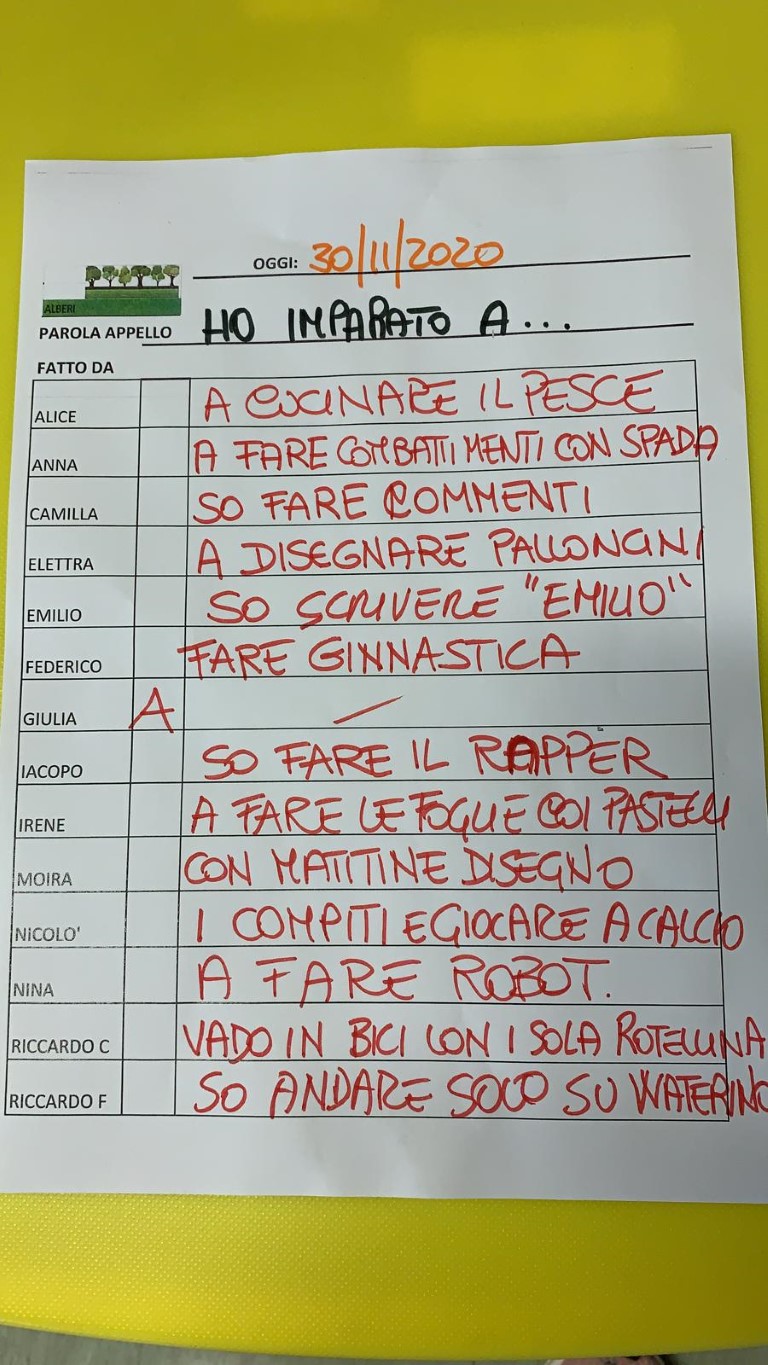 OGGI: 30/11/2020
ALBERI
PAROLA APPELLO HO IMPARATO A...
FATTO DA
ALICE A CUCINARE IL PESCE
ANNA A FARE COMBATTIMENTI CON SPADA
CAMILLA SO FARE COMMENTI
ELETTRA A DISEGNARE PALLONCINI
EMILIO SO SCRIVERE "EMILIO"
FEDERICO FARE GINNASTICA
GIULIA A /
IACOPO SO FARE IL RAPPER
IRENE A FARE LE FOGLIE COI PASTELLI
MOIRA CON MATITINE DISEGNO
NICOLO' I COMPITI E GIOCARE A CALCIO
NINA A FARE ROBOT.
RICCARDO C VADO IN BICI CON 1 SOLA ROTELLINA
RICCARDO F SO ANDARE SOLO SU WATERINO